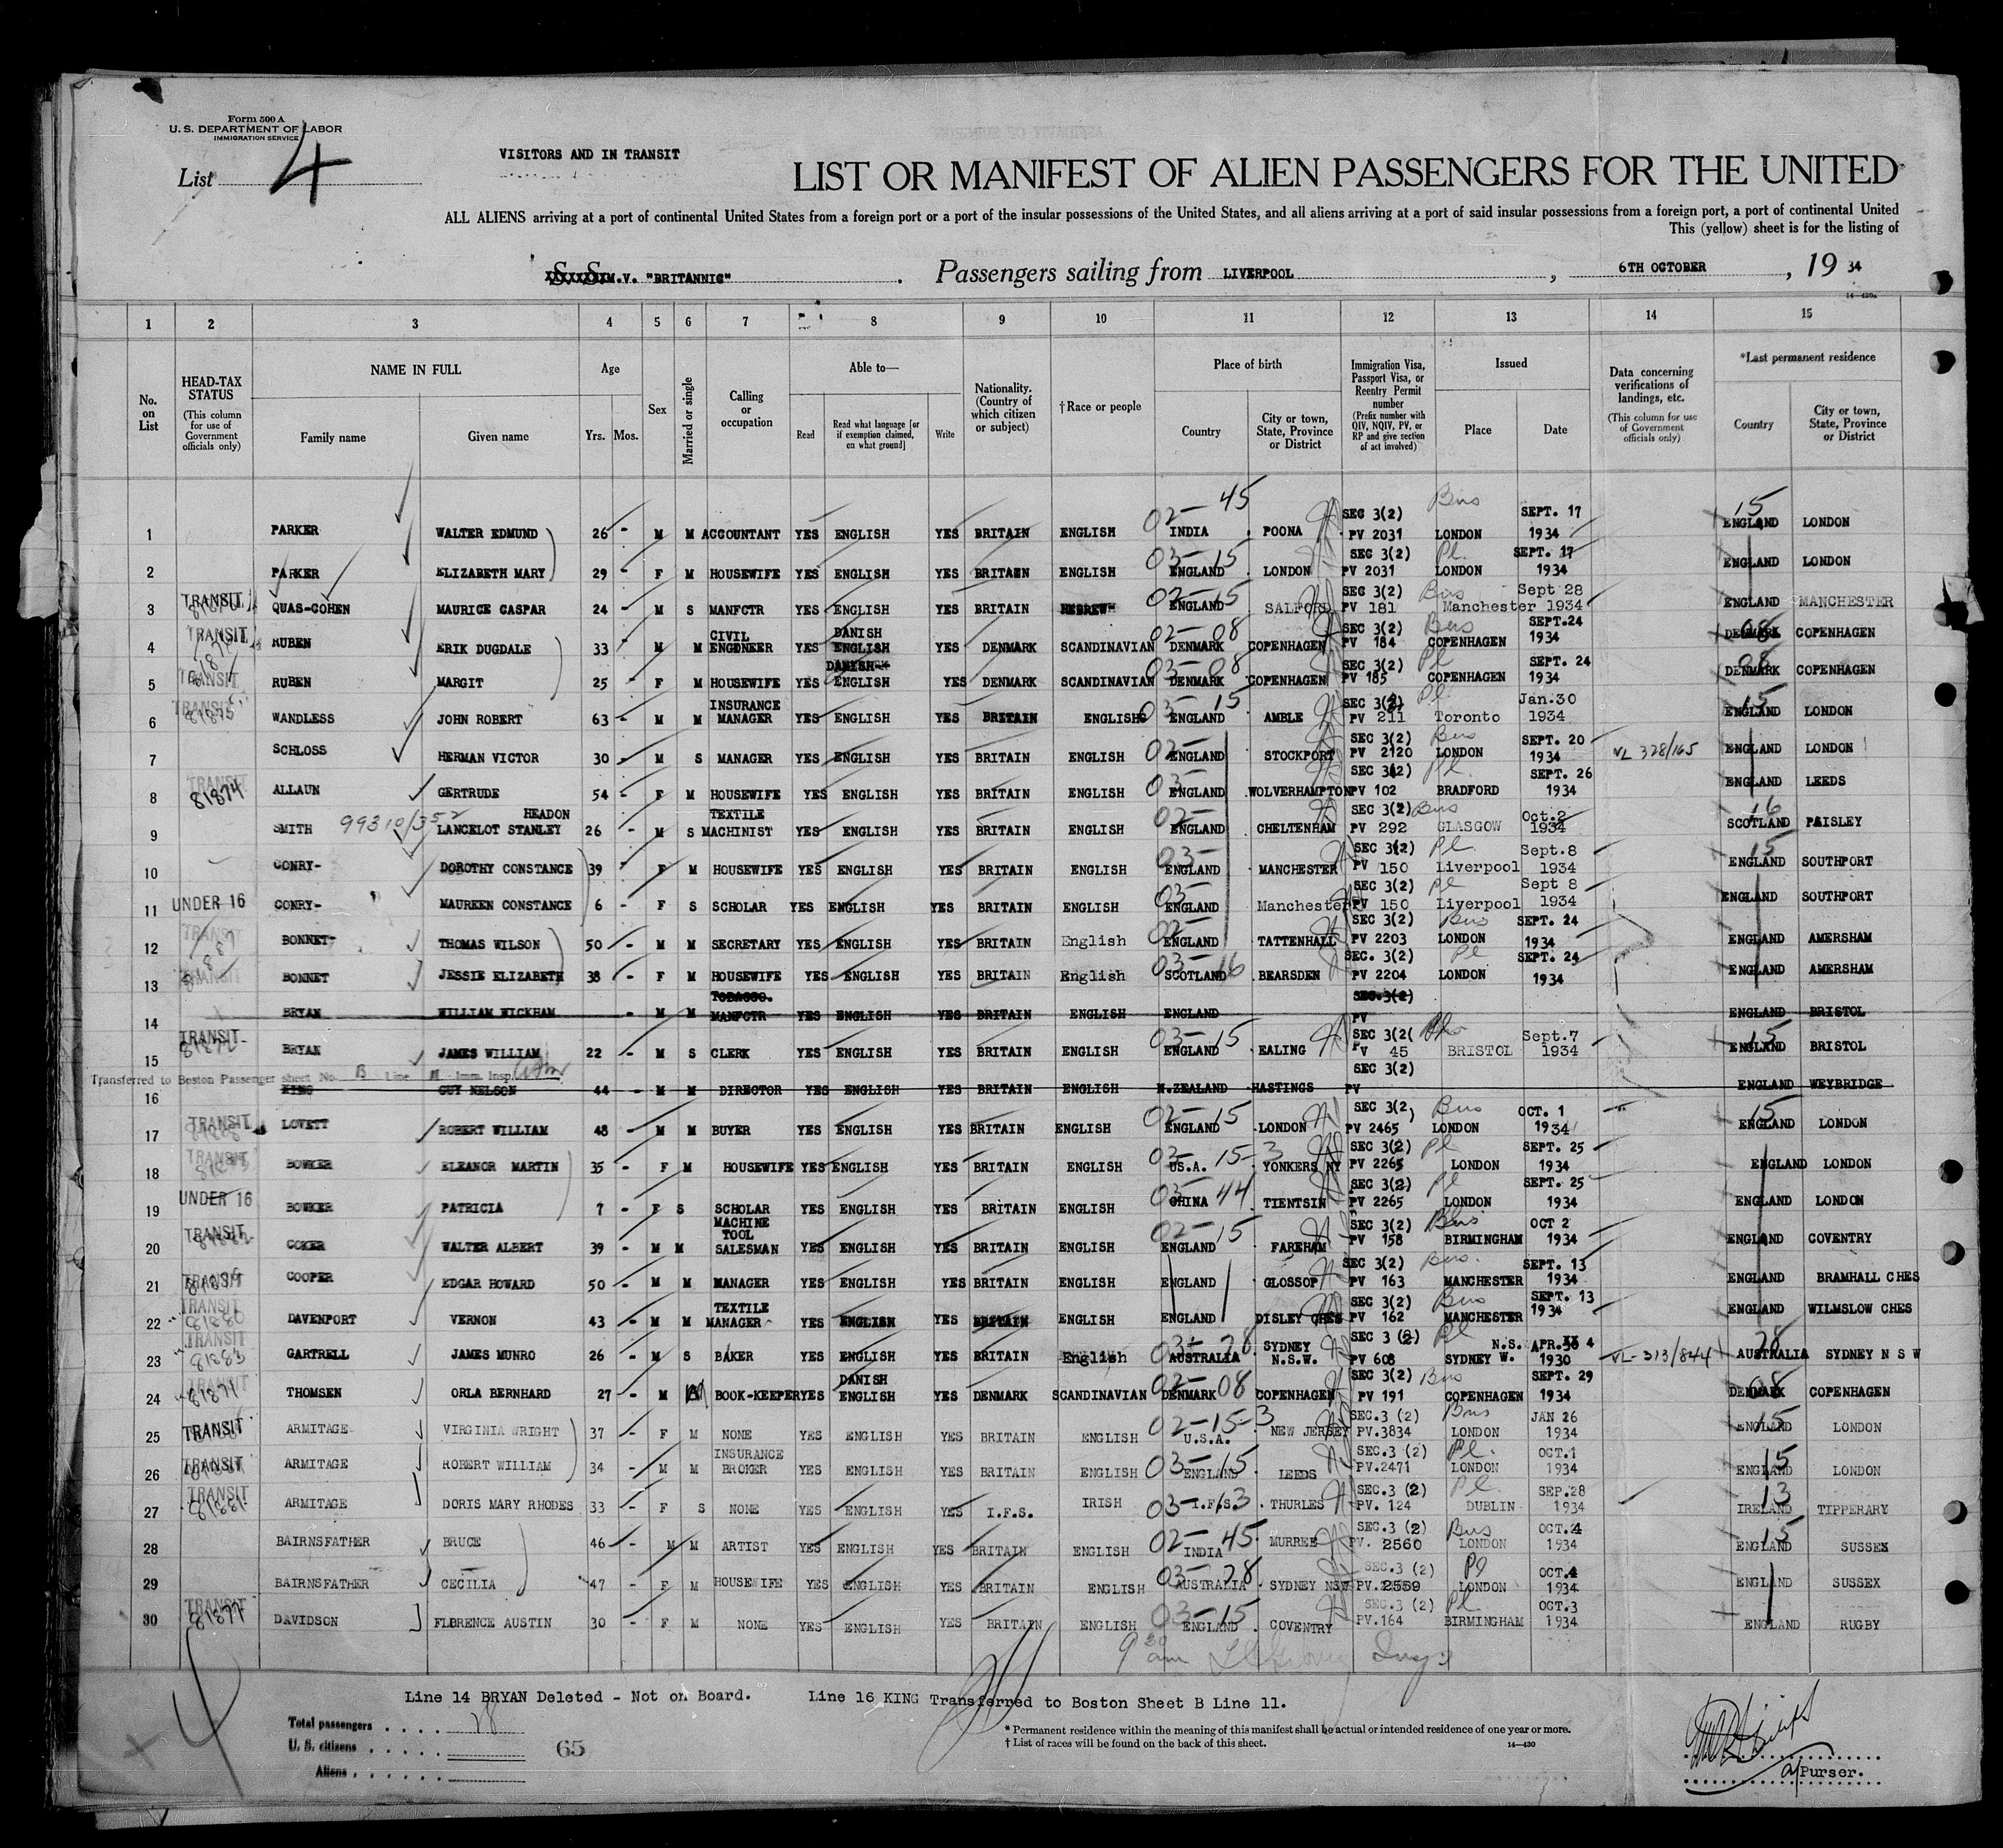 Form 500 A
U. S. DEPARTMENT OF LABOR
IMMIGRATION SERVICE
List 4
VISITORS AND IN TRANSIT
LIST OR MANIFEST OF ALIEN PASSENGERS FOR THE UNITED
ALL ALIENS arriving at a port of continental United States from a foreign port or a port of the insular possessions of the United States, and all aliens arriving at a port of said insular possessions from a foreign port, a port of continental United
This (yellow) sheet is for the listing of
S. S. M.V. "BRITANNIC" . Passengers sailing from LIVERPOOL , 6TH OCTOBER , 19 34
1 2 3 4 5 6 7 8 9 10 11 12 13 14 15
No. on List
HEAD-TAX STATUS (This column for use of Government officials only)
NAME IN FULL Family name Given name
Age Yrs. Mos.
Sex
Married or single
Calling or occupation
Able to— Read Read what language [or if exemption claimed, on what ground] Write
Nationality. (Country of which citizen or subject)
†Race or people
Place of birth Country City or town, State, Province or District
Immigration Visa, Passport Visa, or Reentry Permit number (Prefix number with QIV, NQIV, PV, or RP and give section of act involved)
Issued Place Date
Data concerning verifications of landings, etc. (This column for use of Government officials only)
*Last permanent residence Country City or town, State, Province or District
1 PARKER WALTER EDMUND 26 - M M ACCOUNTANT YES ENGLISH YES BRITAIN ENGLISH 02-45 INDIA POONA SEC 3(2) PV 2031 Bus LONDON SEPT. 17 1934 15 ENGLAND LONDON
2 PARKER ELIZABETH MARY 29 - F M HOUSEWIFE YES ENGLISH YES BRITAIN ENGLISH 03-15 ENGLAND LONDON SEC 3(2) PV 2031 Pl. LONDON SEPT. 17 1934 ENGLAND LONDON
3 TRANSIT QUAS-COHEN MAURICE CASPAR 24 - M S MANFCTR YES ENGLISH YES BRITAIN HEBREW 02-15 ENGLAND SALFORD SEC 3(2) PV 181 Bus Manchester Sept 28 1934 ENGLAND MANCHESTER
4 TRANSIT RUBEN ERIK DUGDALE 33 M M CIVIL ENGINEER YES DANISH ENGLISH YES DENMARK SCANDINAVIAN 02-08 DENMARK COPENHAGEN SEC 3(2) PV 184 Bus COPENHAGEN SEPT.24 1934 08 DENMARK COPENHAGEN
5 TRANSIT RUBEN MARGIT 25 - F M HOUSEWIFE YES DANISH ENGLISH YES DENMARK SCANDINAVIAN 03-08 DENMARK COPENHAGEN SEC 3(2) PV 185 Pl COPENHAGEN SEPT. 24 1934 08 DENMARK COPENHAGEN
6 TRANSIT 81875 WANDLESS JOHN ROBERT 63 - M M INSURANCE MANAGER YES ENGLISH YES BRITAIN ENGLISH 03-15 ENGLAND AMBLE SEC 3(2) PV 211 Pl. Toronto Jan.30 1934 15 ENGLAND LONDON
7 SCHLOSS HERMAN VICTOR 30 - M S MANAGER YES ENGLISH YES BRITAIN ENGLISH 02- ENGLAND STOCKPORT SEC 3(2) PV 2120 Bus LONDON SEPT. 20 1934 VL 328/165 ENGLAND LONDON
8 TRANSIT 81874 ALLAUN GERTRUDE 54 - F M HOUSEWIFE YES ENGLISH YES BRITAIN ENGLISH 03- ENGLAND WOLVERHAMPTON SEC 3(2) PV 102 Pl. BRADFORD SEPT. 26 1934 ENGLAND LEEDS
9 SMITH 99310/352 HEADON LANCELOT STANLEY 26 - M S TEXTILE MACHINIST YES ENGLISH YES BRITAIN ENGLISH 02- ENGLAND CHELTENHAM SEC 3(2) PV 292 Bus GLASGOW Oct.2 1934 16 SCOTLAND PAISLEY
10 CONRY- DOROTHY CONSTANCE 39 F M HOUSEWIFE YES ENGLISH YES BRITAIN ENGLISH 03- ENGLAND MANCHESTER SEC 3(2) PV 150 Pl. Liverpool Sept.8 1934 15 ENGLAND SOUTHPORT
11 UNDER 16 CONRY- MAUREEN CONSTANCE 6 - F S SCHOLAR YES ENGLISH YES BRITAIN ENGLISH 03 ENGLAND Manchester SEC 3(2) PV 150 Pl Liverpool Sept 8 1934 ENGLAND SOUTHPORT
12 TRANSIT BONNET- THOMAS WILSON 50 - M M SECRETARY YES ENGLISH YES BRITAIN English 02- ENGLAND TATTENHALL SEC 3(2) PV 2203 Bus LONDON SEPT. 24 1934 ENGLAND AMERSHAM
13 TRANSIT BONNET JESSIE ELIZABETH 38 - F M HOUSEWIFE YES ENGLISH YES BRITAIN English 03-16 SCOTLAND BEARSDEN SEC. 3(2) PV 2204 Pl LONDON SEPT. 24 1934 ENGLAND AMERSHAM
14 BRYAN WILLIAM WICKHAM - M M TOBACCO. MANFCTR YES ENGLISH YES BRITAIN ENGLISH ENGLAND SEC.3(2) PV ENGLAND BRISTOL
15 TRANSIT BRYAN JAMES WILLIAM 22 - M S CLERK YES ENGLISH YES BRITAIN ENGLISH 03-15 ENGLAND EALING SEC 3(2( PV 45 BRISTOL Sept.7 1934 15 ENGLAND BRISTOL
Transferred to Boston Passenger sheet No. B Line 11 Imm. Insp.
16 KING GUY NELSON 44 - M M DIRECTOR YES ENGLISH YES BRITAIN ENGLISH N.ZEALAND HASTINGS SEC 3(2) PV ENGLAND WEYBRIDGE
17 TRANSIT LOVETT ROBERT WILLIAM 48 M M BUYER YES ENGLISH YES BRITAIN ENGLISH 02-15 ENGLAND LONDON SEC 3(2) PV 2465 Bus LONDON OCT. 1 1934 15 ENGLAND LONDON
18 TRANSIT BOWKER ELEANOR MARTIN 35 - F M HOUSEWIFE YES ENGLISH YES BRITAIN ENGLISH 03-15-3 US.A. YONKERS NY SEC 3(2) PV 2265 Pl LONDON SEPT. 25 1934 ENGLAND LONDON
19 UNDER 16 BOWKER PATRICIA 7 - F S SCHOLAR YES ENGLISH YES BRITAIN ENGLISH 03-44 CHINA TIENTSIN SEC 3(2) PV 2265 Pl LONDON SEPT. 25 1934 ENGLAND LONDON
20 TRANSIT COKER WALTER ALBERT 39 - M M MACHINE TOOL SALESMAN YES ENGLISH YES BRITAIN ENGLISH 02-15 ENGLAND FAREHAM SEC 3(2) PV 158 Bus BIRMINGHAM OCT 2 1934 ENGLAND COVENTRY
21 TRANSIT COOPER EDGAR HOWARD 50 - M M MANAGER YES ENGLISH YES BRITAIN ENGLISH ENGLAND GLOSSOP SEC 3(2) PV 163 Bus. MANCHESTER SEPT. 13 1934 ENGLAND BRAMHALL CHES
22 TRANSIT 81880 DAVENPORT VERNON 43 - M M TEXTILE MANAGER YES ENGLISH YES BRITAIN ENGLISH ENGLAND DISLEY CHES SEC 3(2) PV 162 Bus MANCHESTER SEPT. 13 1934 ENGLAND WILMSLOW CHES
23 TRANSIT 81883 GARTRELL JAMES MUNRO 26 - M S BAKER YES ENGLISH YES BRITAIN English 03-28 AUSTRALIA SYDNEY N.S.W. SEC 3 (2) PV 608 Pl SYDNEY N.S. W. APR. 4 1930 VL-313/844 28 AUSTRALIA SYDNEY N S W
24 TRANSIT 81871 THOMSEN ORLA BERNHARD 27 - M M BOOK-KEEPER YES DANISH ENGLISH YES DENMARK SCANDINAVIAN 02-08 DENMARK COPENHAGEN SEC 3(2) PV 191 Bus COPENHAGEN SEPT. 29 1934 08 DENMARK COPENHAGEN
25 TRANSIT ARMITAGE VIRGINIA WRIGHT 37 - F M NONE YES ENGLISH YES BRITAIN ENGLISH 02-15-3 U.S.A. NEW JERSEY SEC.3 (2) PV.3834 Bus LONDON JAN 26 1934 15 ENGLAND LONDON
26 TRANSIT ARMITAGE ROBERT WILLIAM 34 - M M INSURANCE BROKER YES ENGLISH YES BRITAIN ENGLISH 03-15 ENGLAND LEEDS SEC.3 (2) PV.2471 Pl. LONDON OCT.1 1934 15 ENGLAND LONDON
27 TRANSIT 81881 ARMITAGE DORIS MARY RHODES 33 - F S NONE YES ENGLISH YES I.F.S. IRISH 03-13 I.F.S. THURLES SEC.3 (2) PV. 124 Pl. DUBLIN SEP.28 1934 13 IRELAND TIPPERARY
28 BAIRNSFATHER BRUCE 46 - M M ARTIST YES ENGLISH YES BRITAIN ENGLISH 02-45 INDIA MURREE SEC.3 (2) PV. 2560 Bus LONDON OCT.4 1934 15 ENGLAND SUSSEX
29 BAIRNSFATHER CECILIA 47 - F M HOUSEWIFE YES ENGLISH YES BRITAIN ENGLISH 03-28 AUSTRALIA SYDNEY NSW SEC.3 (2) PV.2559 Pl LONDON OCT.4 1934 ENGLAND SUSSEX
30 TRANSIT 81877 DAVIDSON FLORENCE AUSTIN 30 - F M NONE YES ENGLISH YES BRITAIN ENGLISH 03-15 ENGLAND COVENTRY SEC.3 (2) PV.164 Pl BIRMINGHAM OCT.3 1934 ENGLAND RUGBY
9 30 am Insp.
Line 14 BRYAN Deleted - Not on Board. Line 16 KING Transferred to Boston Sheet B Line 11.
Total passengers . . . . 28
U. S. citizens . . . . .
65
Aliens . . . . . .
* Permanent residence within the meaning of this manifest shall be actual or intended residence of one year or more.
† List of races will be found on the back of this sheet. 14—430
Purser.